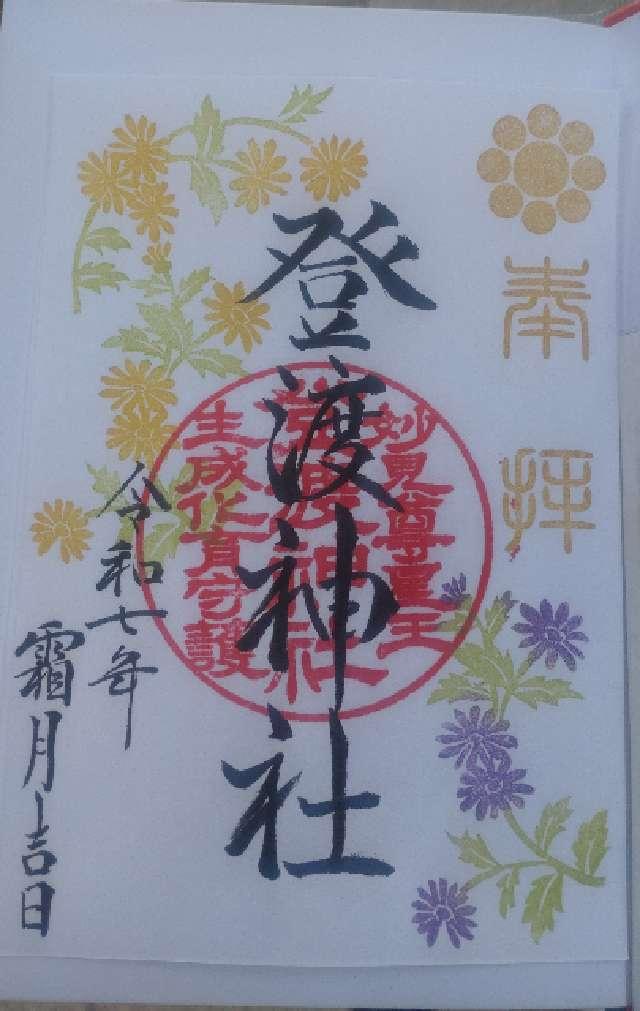 奉拝
妙見尊星王
登渡神社
生成化育守護
登渡神社
令和七年
霜月吉日